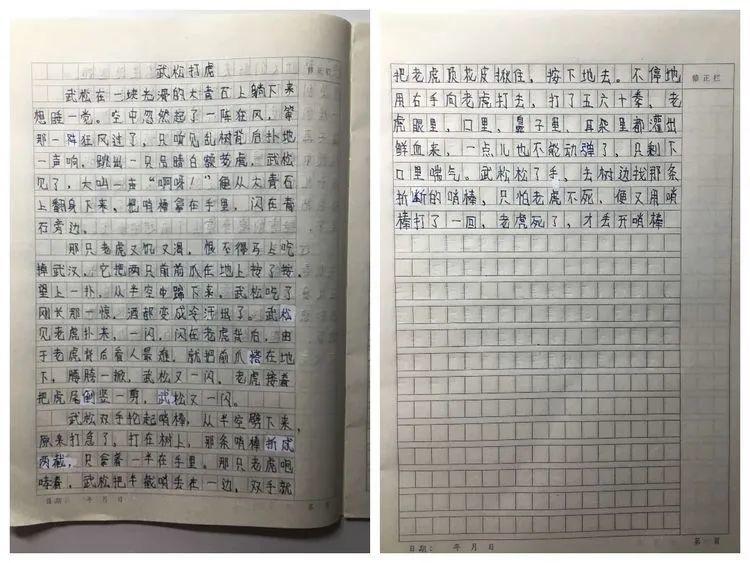 武松打虎
武松在一块光滑的大青石上躺下来
想睡一觉。空中忽然起了一阵狂风,
那一阵狂风过了,只听见乱树背后扑地
一声响,跳出一只吊睛白额 虎。武松
见了,大叫一声“啊呀!”便从大青石
上翻身下来,把哨棒拿在手里,闪在青
石旁边。
那只老虎又饥又渴,恨不得马上吃
掉武汉。它把两只前前爪在地上按了按,
望上一扑,从半空中蹿下来。武松吃了
那一惊,酒都变成冷汗出了。武松
见老虎扑来,一闪,闪在老虎背后。由
于老虎背后看人最难,就把前爪搭在地
下,腰胯一掀,武松又一闪。老虎接着
把虎尾倒竖一剪,武松又一闪。
武松双手轮起哨棒,从半空劈下来,
原来打急了,打在树上,那条哨棒折成
两截,只拿着一半在手里。那只老虎咆
哮着,武松把半截哨丢在一边,双手就
日期: 年 月 日
第 页
把老虎顶花皮揪住,按下地去。不停地
用右手向老虎打去,打了五六十拳,老
虎眼里,口里,鼻子里,耳朵里都灌出
鲜血来,一点儿也不能动弹了,只剩下
口里喘气。武松松了手,去树边找那条
折断的哨棒,只怕老虎不死,便又用哨
棒打了一回,老虎死了,才丢开哨棒
修正栏
日期: 年 月 日
第 页